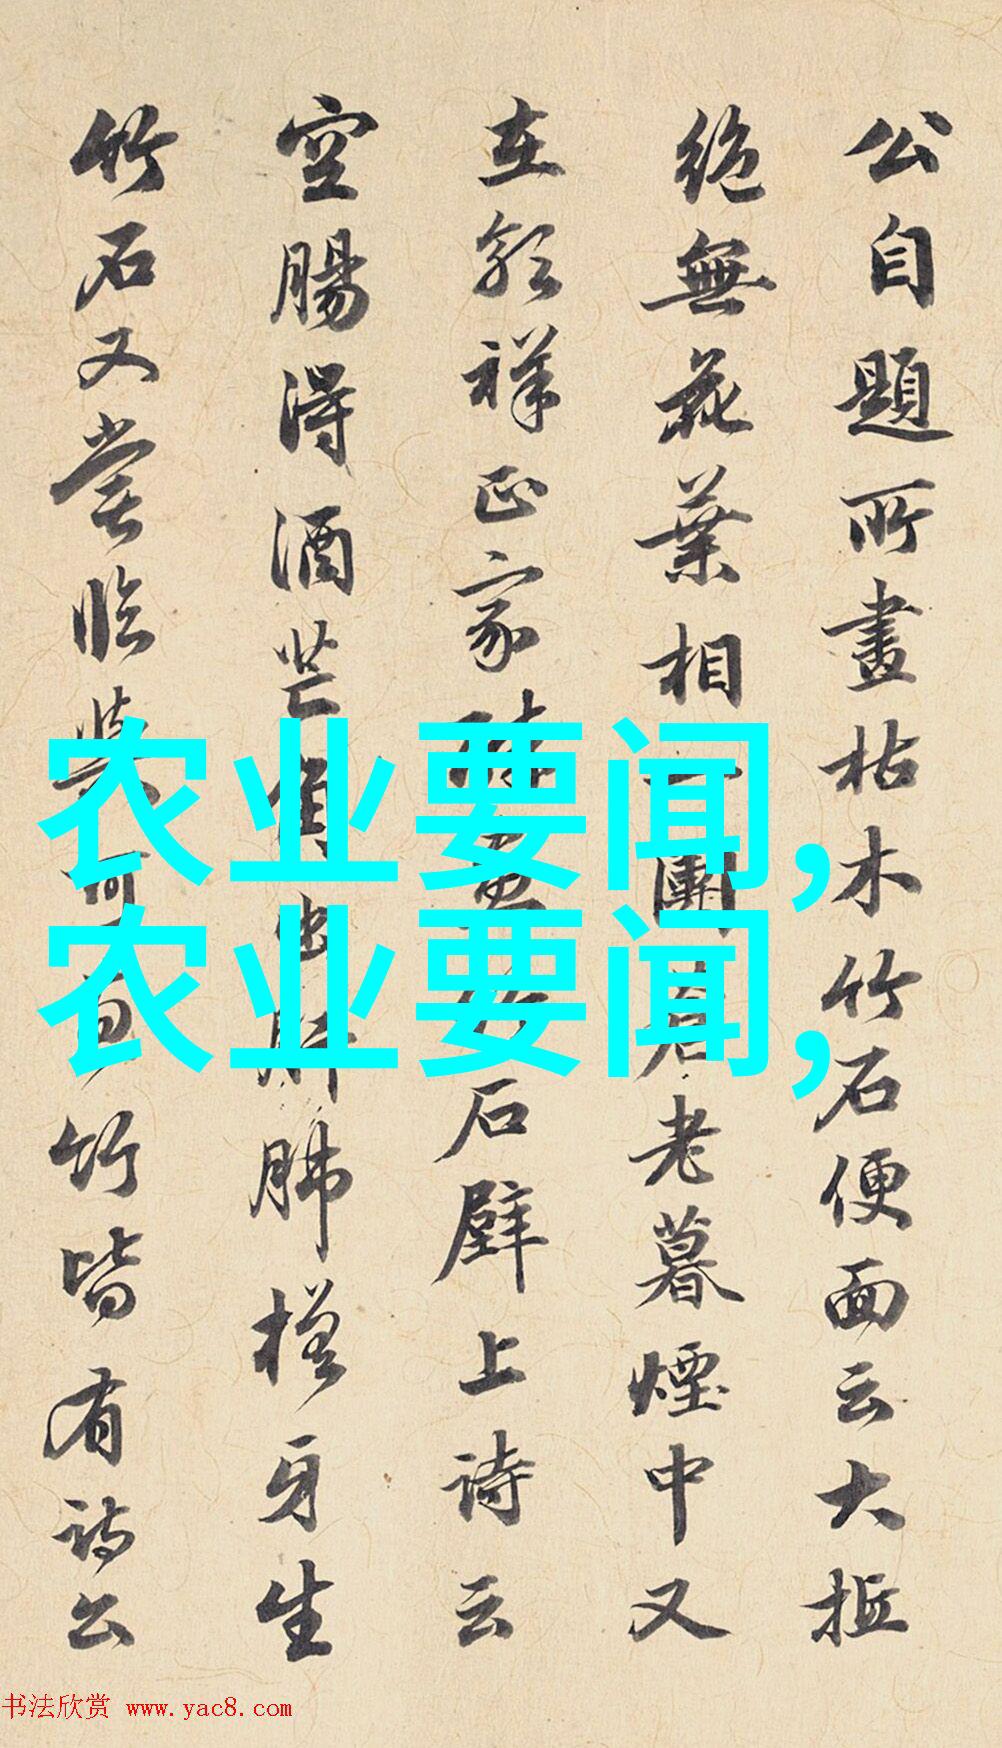 公自題所畫枯木竹石便面云大抵
絶無花葉相一團蒼老暮煙中又
在郭祥正家醉畫竹石壁上詩云
空腸得酒芒角出肝肺槎牙生
竹石又嘗臨 竹皆有詩公
农业要闻,
农业要闻,
书法欣赏 www.yac8.com